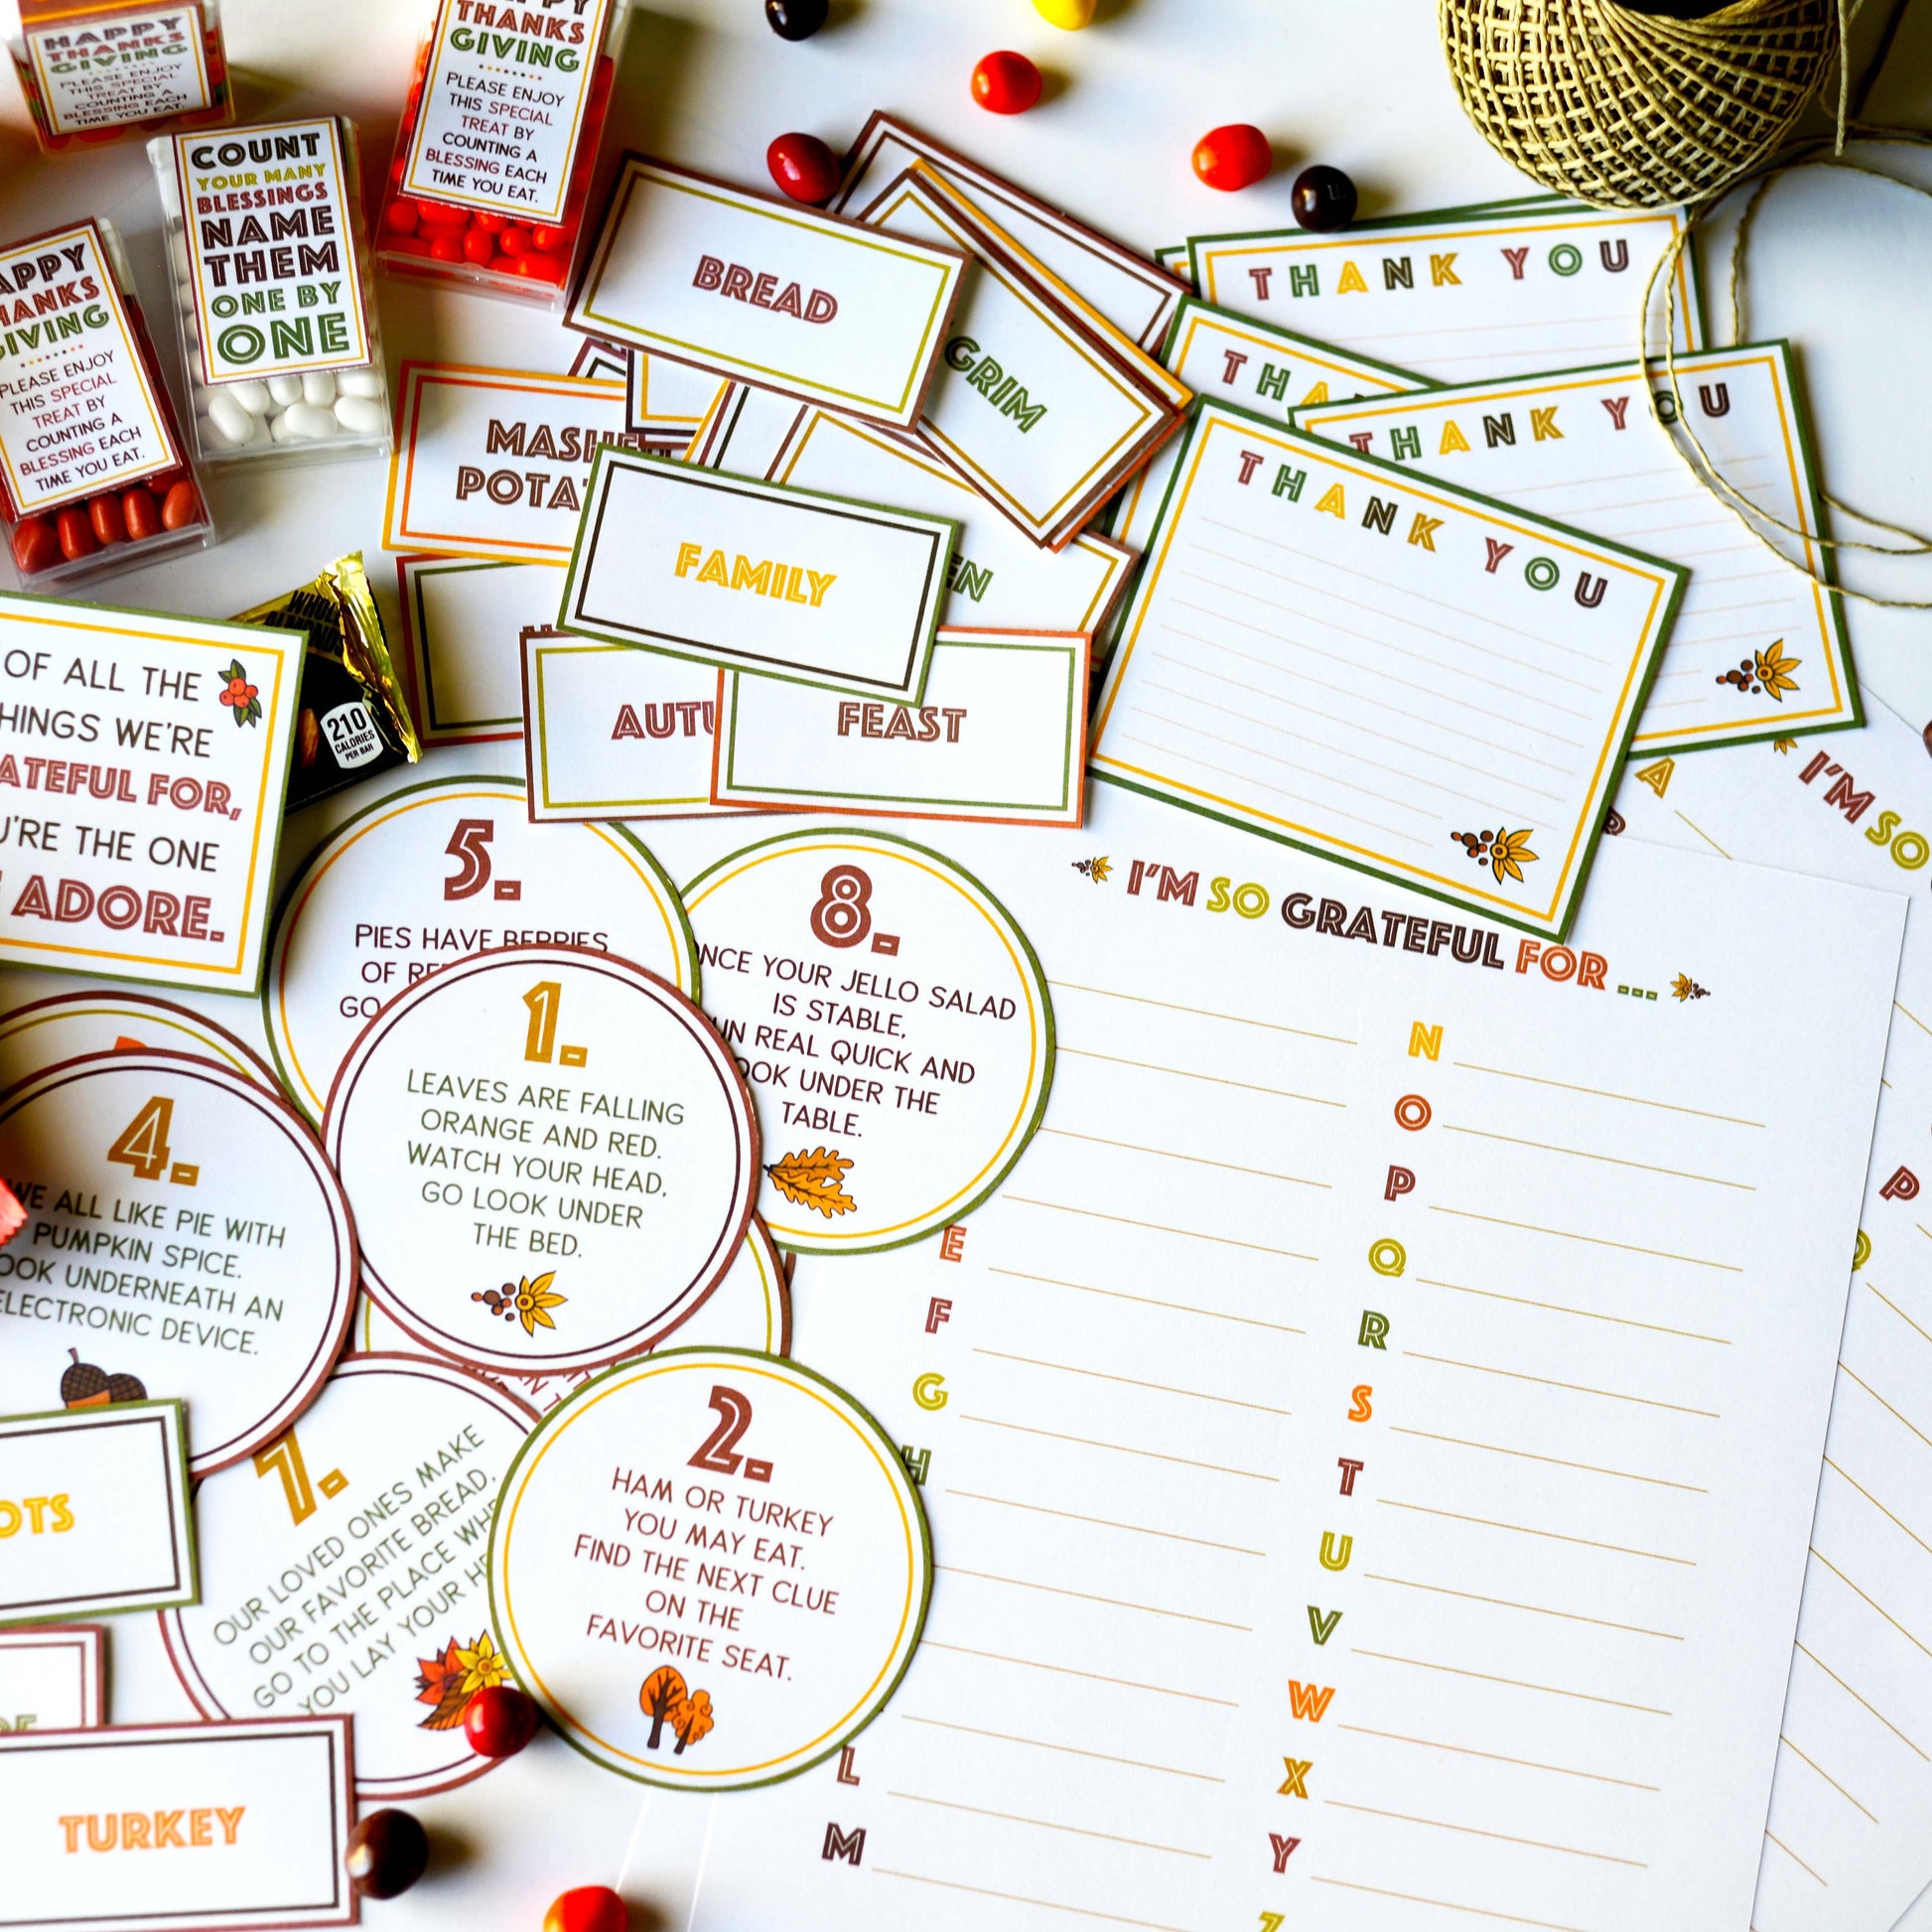 HAPPY
THANKS
GIVING
PLEASE ENJOY
THIS SPECIAL
TREAT BY
COUNTING A
BLESSING EACH
TIME YOU EAT.
COUNT
YOUR MANY
BLESSINGS
NAME
THEM
ONE BY
ONE
THANKS
GIVING
PLEASE ENJOY
THIS SPECIAL
TREAT BY
COUNTING A
BLESSING EACH
TIME YOU EAT.
APPY
HANKS
GIVING
PLEASE ENJOY
THIS SPECIAL
TREAT BY
COUNTING A
BLESSING EACH
TIME YOU EAT.
BREAD
GRIM
MASHE
POTA
FAMILY
EN
AUTU
FEAST
THANK YOU
THA
THANK YOU
THANK YOU
210
CALORIES
PER BAR
OF ALL THE
HINGS WE'RE
ATEFUL FOR,
U'RE THE ONE
ADORE.
5.
PIES HAVE BERRIES
OF RE
GO
8.
NCE YOUR JELLO SALAD
IS STABLE,
UN REAL QUICK AND
OOK UNDER THE
TABLE.
1.
LEAVES ARE FALLING
ORANGE AND RED.
WATCH YOUR HEAD,
GO LOOK UNDER
THE BED.
4.
WE ALL LIKE PIE WITH
PUMPKIN SPICE.
OOK UNDERNEATH AN
ELECTRONIC DEVICE.
7.
OUR LOVED ONES MAKE
OUR FAVORITE BREAD,
GO TO THE PLACE WHE
YOU LAY YOUR HE
2.
HAM OR TURKEY
YOU MAY EAT.
FIND THE NEXT CLUE
ON THE
FAVORITE SEAT.
OTS
TURKEY
I'M SO GRATEFUL FOR ...
E
F
G
H
L
M
N
O
P
Q
R
S
T
U
V
W
X
Y
Z
I'M SO
A
P